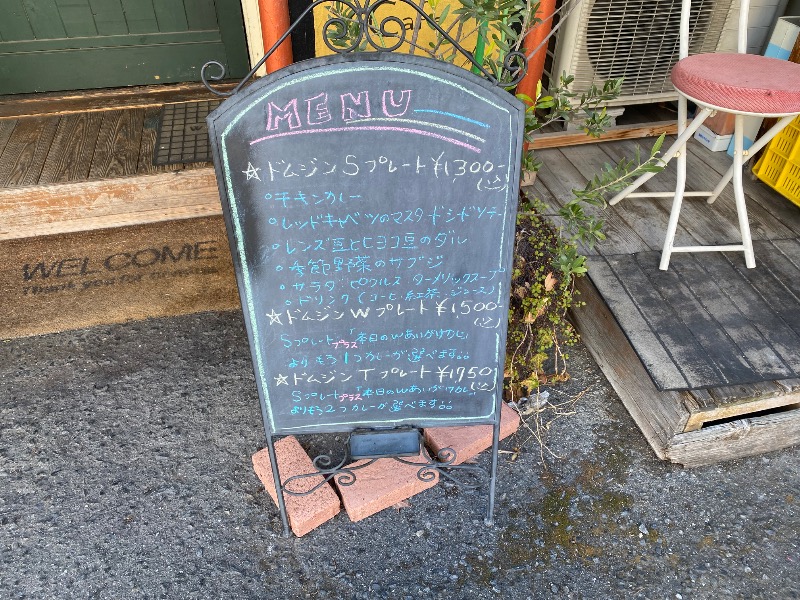 MENU
☆ドムジン Sプレート ¥1300-
(込)
○チキンカレー
○レッドキャベツのマスタードシードソテー
○レンズ豆とヒヨコ豆のダル
○季節野菜のサブジ
○サラダ・ピクルス ターメリックスープ
○ドリンク(コーヒ・紅茶・ジュース)
☆ドムジン Wプレート ¥1,500-
(込)
Sプレート プラス「本日のWあいがけカレー」
よりもう1つカレーが選べます。。
☆ドムジン Tプレート ¥1750
(込)
Sプレート プラス「本日のWあいがけカレー」
よりもう2つカレーが選べます。。
WELCOME
Thank you for